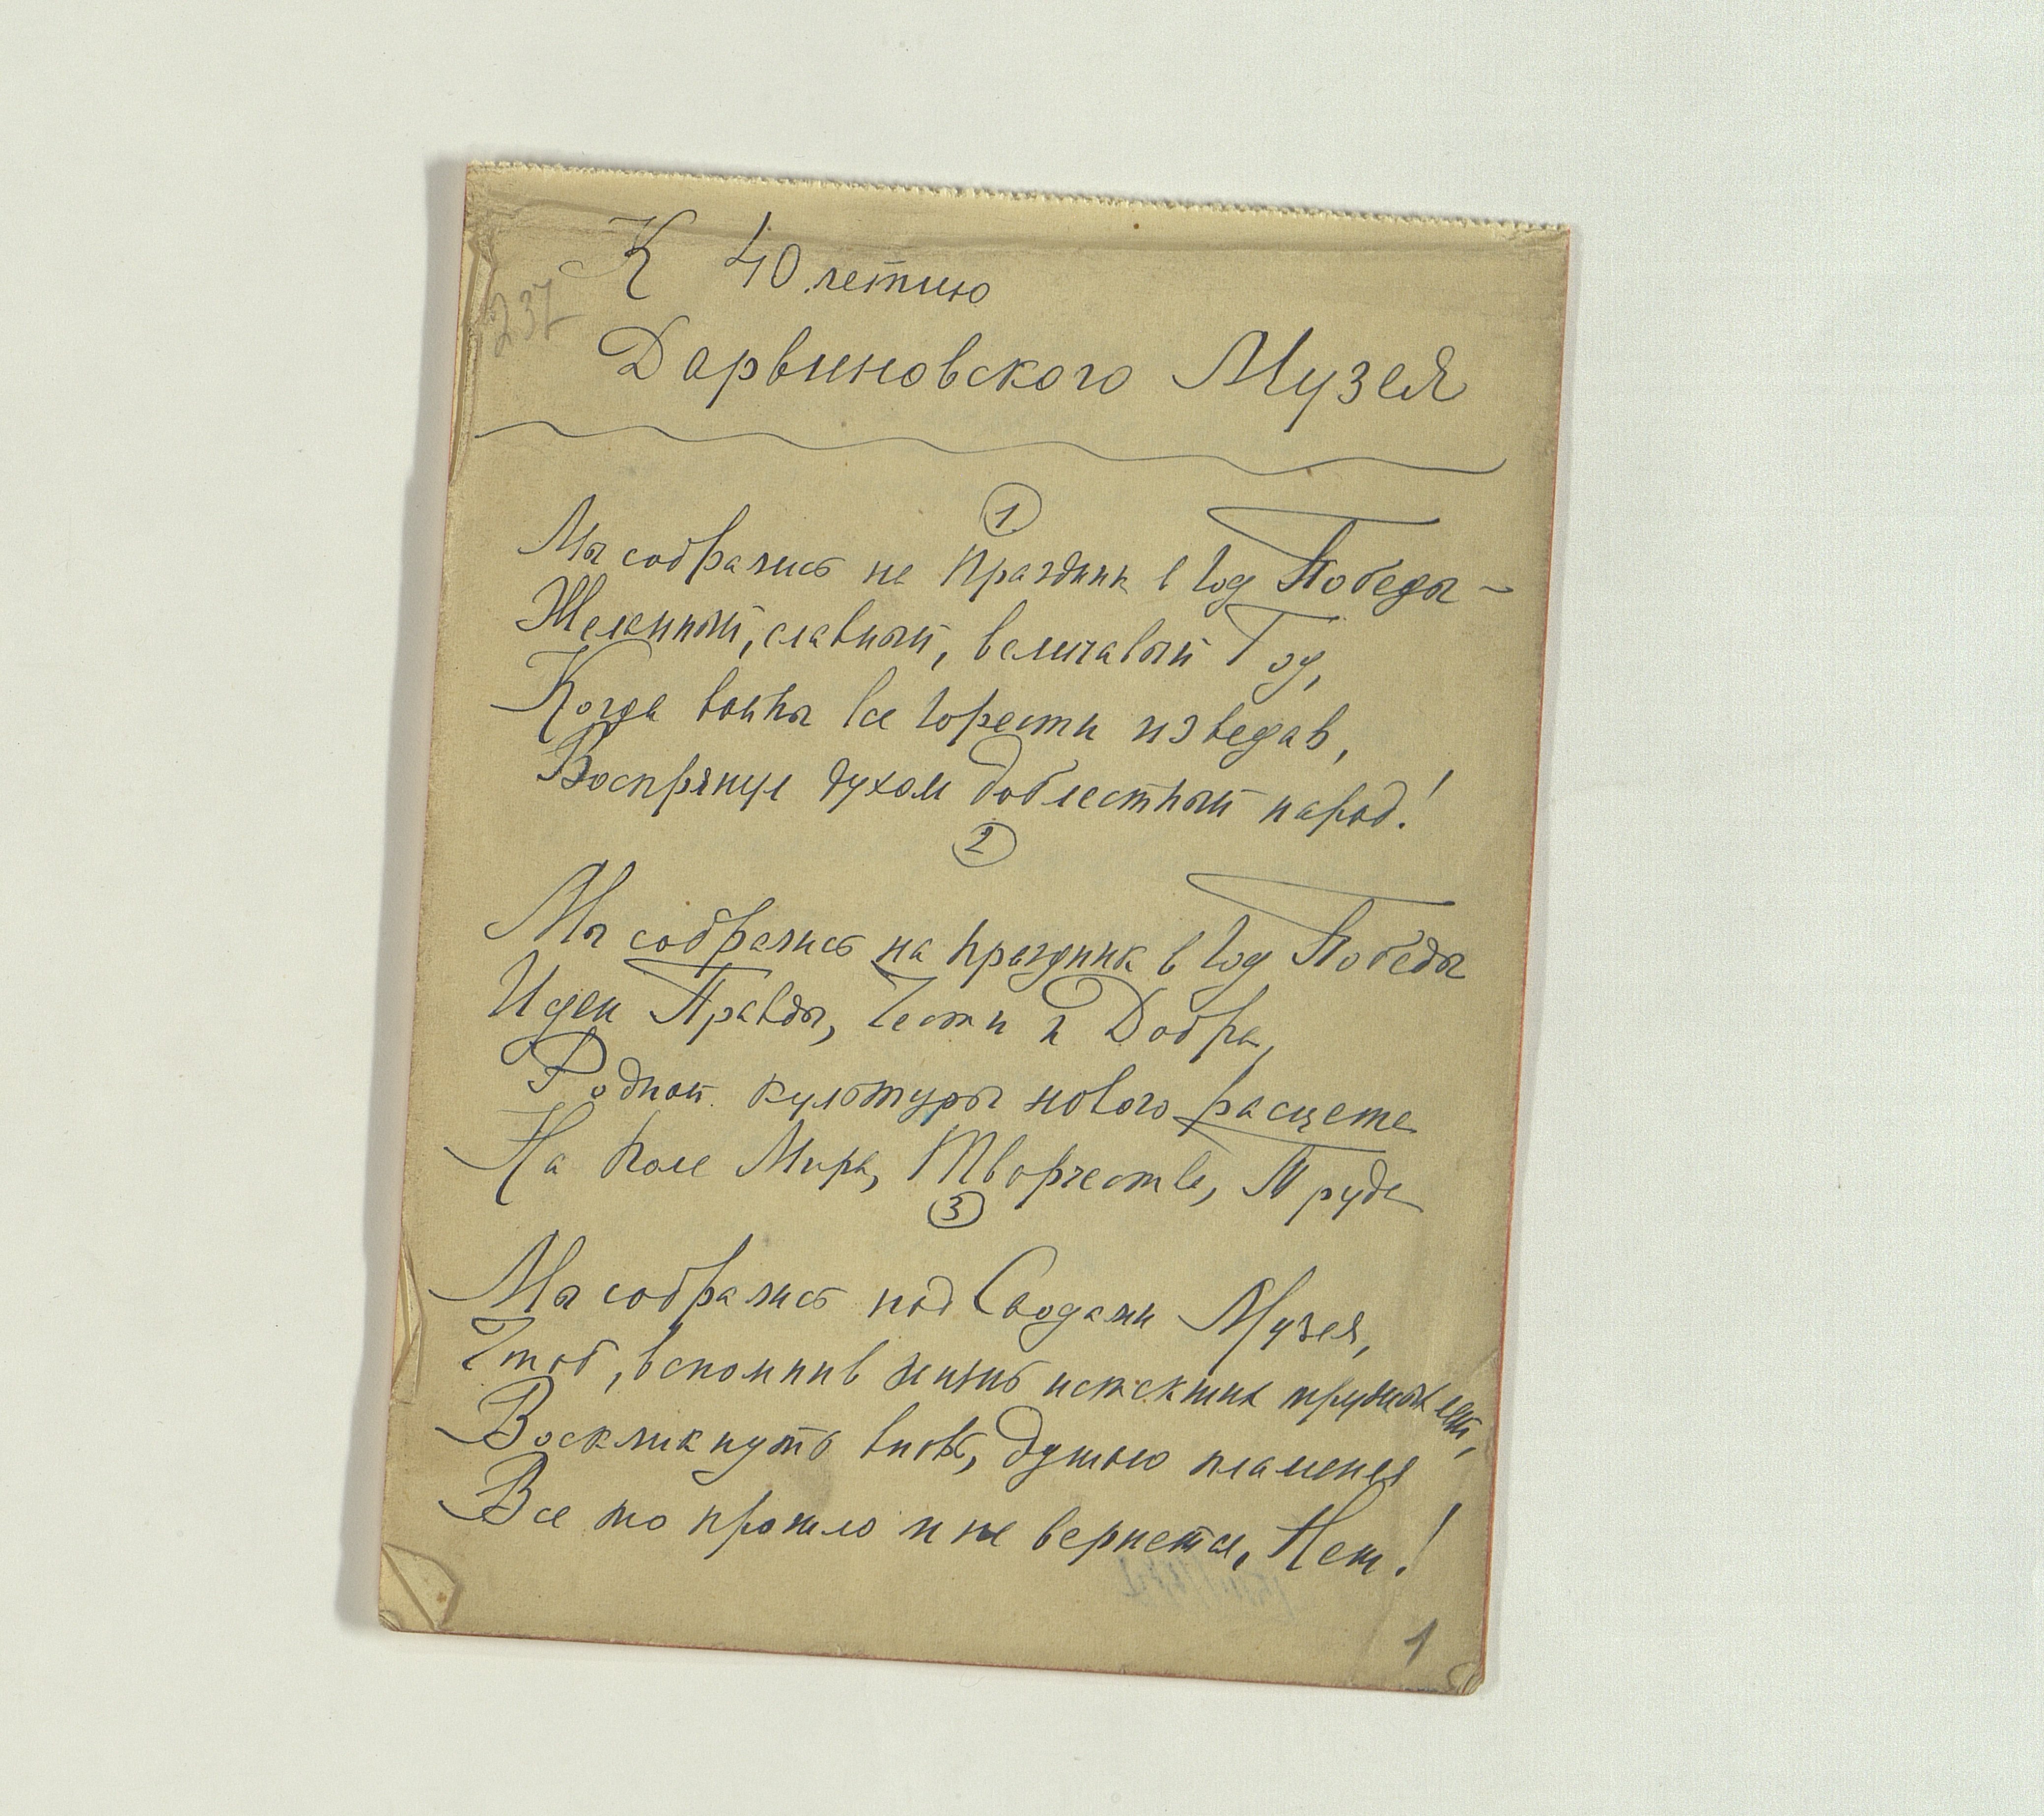 К 40 летию
237
Дарвиновского Музея
1
Мы собрались на Праздник в Год Победы –
Желанный, славный, величавый Год,
Когда войны все горести изведав,
Воспрянул духом доблестный народ!
2
Мы собрались на праздник в Год Победы
Идеи Правды, Чести и Добра,
Родной культуры нового расцвета
На поле Мира, Творчества, Труда
3
Мы собрались под Сводами Музея,
Чтоб, вспомнив жизнь истекших трудных лет,
Воскликнуть вновь, душою пламенея
Все то прошло и не вернется, Нет!
1